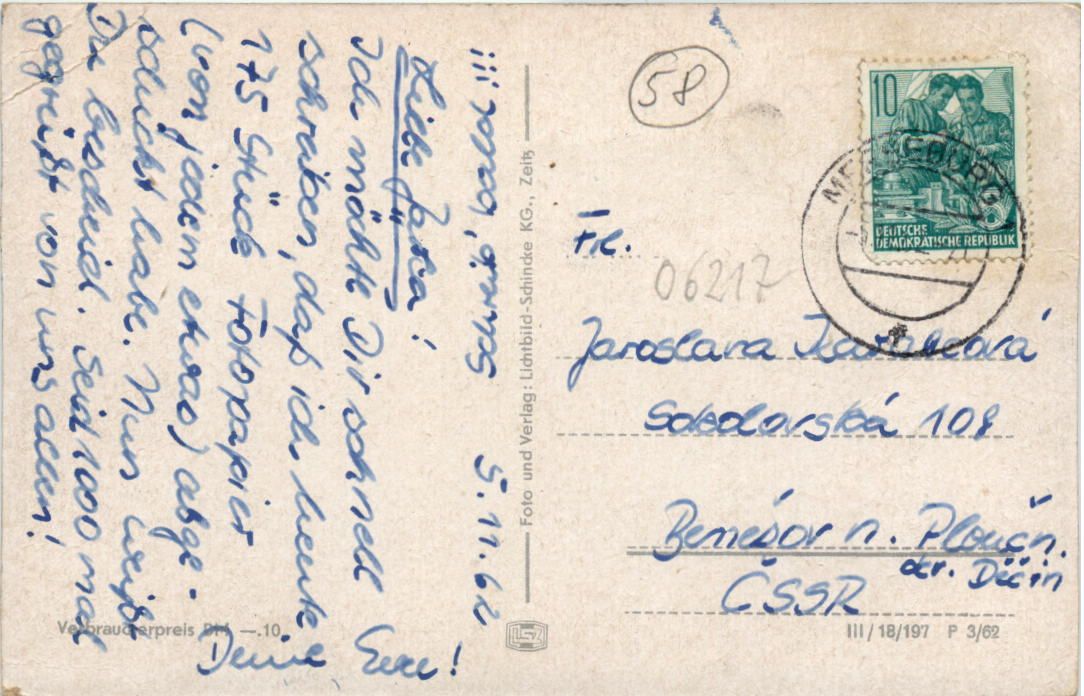 5.11.62
Liebe Jarča!
Ich möchte Dir schnell
schreiben, daß ich heute
175 Stück Fotopapier
(von jedem etwas) abge-
schickt habe. Nun weißt
Du bescheid. Seid 1000 mal
gegrüßt von uns allen!
Deine
Verbraucherpreis DM —.10
Foto und Verlag: Lichtbild-Schincke KG., Zeitz
58
10
DEUTSCHE
DEMOKRATISCHE REPUBLIK
MERSEBURG
Frl.
06217
Jaroslava
Sokolovská 108
Benešov n. Ploučn.
okr. Děčín
ČSSR
III/18/197 P 3/62